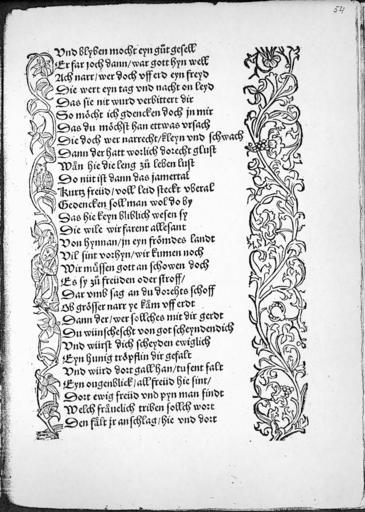 54
Vnd blyben mocht eyn gůt gesell
Er far joch dann/war gott hyn well
Ach narr/wer doch vff erd eyn freyd
Die wert eyn tag vnd nacht on leyd
Das sie nit wurd verbittert dir
So möcht ich gdencken doch jn mir
Das du möchst han ettwas vrsach
Die doch wer narrecht/kleyn vnd schwach
Dann der hatt worlich dorecht glust
Wān hie die leng zů leben lust
Do nüt ist dann das jamertal
Kurtz freüd/voll leid steckt vberal
Gedencken soll man wol do by
Das hie keyn bliblich wesen sy
Die wile wir farent allesant
Von hynnan/jn eyn frömdes landt
Vil sint vorhyn/wir kumen noch
Wir müssen gott an schowen doch
Es sy zů freüden oder stroff/
Dar vmb sag an du dorehts schoff
Ob grösser narr ye käm vff erdt
Dann der/wer sollches mit dir gerdt
Du wünschescht von got scheyndendich
Vnd würst dich scheyden ewiglich
Eyn hunig tröpflin dir gefalt
Vnd würd dort gall han/tusent falt
Eyn ougenblick/all freüd hie sint/
Dort ewig freüd vnd pyn man findt
Welch fräuelich triben sollch wort
Den fält jr anschlag/hie vnd dort